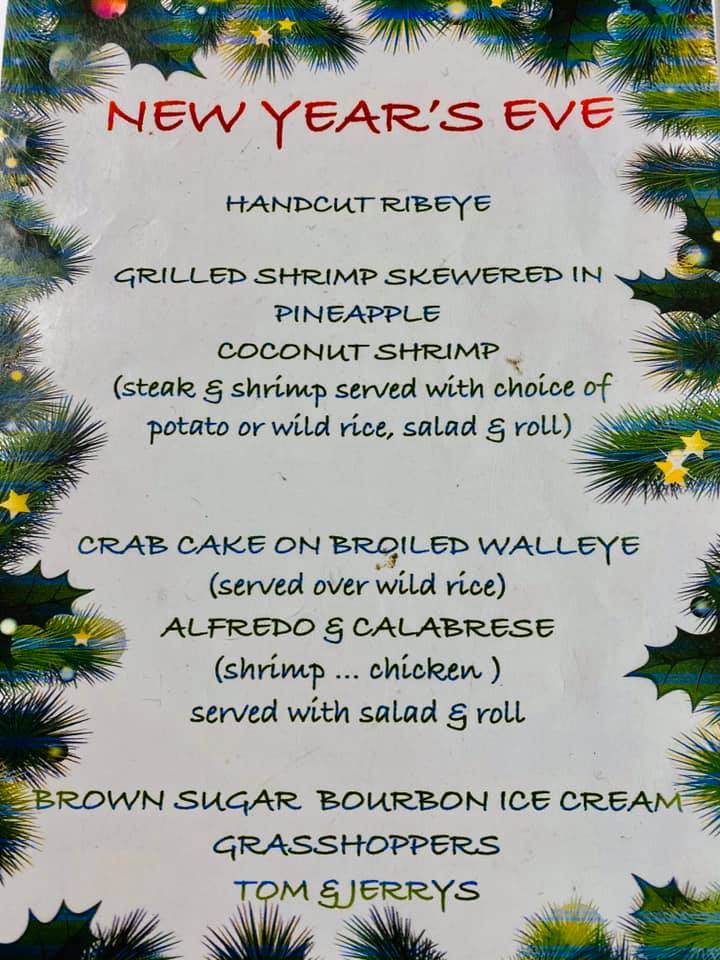 NEW YEAR'S EVE
HANDCUT RIBEYE
GRILLED SHRIMP SKEWERED IN
PINEAPPLE
COCONUT SHRIMP
(steak & shrimp served with choice of
potato or wild rice, salad & roll)
CRAB CAKE ON BROILED WALLEYE
(served over wild rice)
ALFREDO & CALABRESE
(shrimp ... chicken )
served with salad & roll
BROWN SUGAR BOURBON ICE CREAM
GRASSHOPPERS
TOM & JERRYS